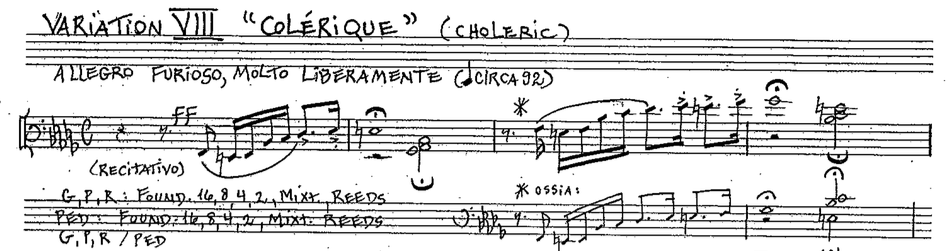 VARIATION VIII "COLÉRIQUE" (CHOLERIC)
ALLEGRO FURIOSO, MOLTO LIBERAMENTE (♩CIRCA 92)
FF
*
(RECITATIVO)
G, P, R: FOUND. 16, 8, 4, 2, MIXT. REEDS
* OSSIA:
PED: FOUND. 16, 8, 4, 2, MIXT. REEDS
G, P, R / PED